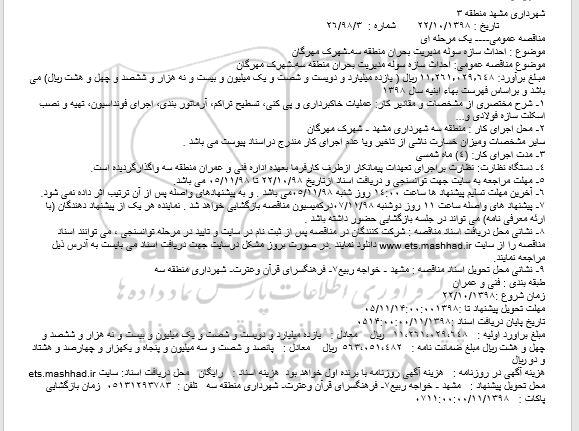 شهرداری مشهد منطقه ۳
تاریخ : ۲۲/۱۰/۱۳۹۸ شماره : ۲۶/۹۸/۳
مناقصه عمومی---- یک مرحله ای
موضوع : احداث سازه سوله مدیریت بحران منطقه سه.شهرک مهرگان
موضوع مناقصه عمومی: احداث سازه سوله مدیریت بحران منطقه سه.شهرک مهرگان
مبلغ برآورد: ۱۱،۲۶۱،۰۲۹،۶۴۸ ریال ( یازده میلیارد و دویست و شصت و یک میلیون و بیست و نه هزار و ششصد و چهل و هشت ریال) می
باشد و براساس فهرست بهاء ابنیه سال ۱۳۹۸
۱- شرح مختصری از مشخصات و مقادیر کار: عملیات خاکبرداری و پی کنی، تسطیح تراکم، آرماتور بندی، اجرای فونداسیون، تهیه و نصب
اسکلت سازه فولادی و...
۲- محل اجرای کار : منطقه سه شهرداری مشهد - شهرک مهرگان
سایر مشخصات ومیزان خسارت ناشی از تاخیر ویا عدم اجرای کار مندرج دراسناد پیوست می باشد .
۳- مدت اجرای کار: (۴) ماه شمسی
۴- دستگاه نظارت: نظارت براجرای تعهدات پیمانکار ازطرف کارفرما بعهده اداره فنی و عمران منطقه سه واگذارگردیده است.
۵- مهلت مراجعه به سایت جهت توانسنجی و دریافت اسناد ازتاریخ ۲۲/۱۰/۹۸ تا ۰۵/۱۱/۹۸ می باشد.
۶- آخرین مهلت تسلیم پیشنهاد ها ساعت ۱۴:۰۰ روز شنبه ۰۵/۱۱/۹۸ می باشد . و به پیشنهادهای واصله پس از آن ترتیب اثر داده نمی شود.
۷- پیشنهاد های واصله ساعت ۱۱ روز دوشنبه ۰۷/۱۱/۹۸ درکمیسیون مناقصه بازگشایی خواهد شد . نماینده هر یک از پیشنهاد دهندگان (با
ارئه معرفی نامه) می تواند در جلسه بازگشایی حضور داشته باشد .
۸- نشانی محل دریافت اسناد مناقصه : شرکت کنندگان در مناقصه پس از ثبت نام در سایت و تایید در مرحله توانسنجی ، می توانند اسناد
مناقصه را از سایت www.ets.mashhad.ir دانلود نمایند .در صورت بروز مشکل درسایت جهت دریافت اسناد می بایست به آدرس ذیل
مراجعه نمایند.
۹- نشانی محل تحویل اسناد مناقصه : مشهد - خواجه ربیع۷- فرهنگسرای قرآن وعترت- شهرداری منطقه سه
طبقه بندی : فنی و عمران
زمان شروع :۲۲/۱۰/۱۳۹۸
مهلت تحویل پیشنهاد تا :۰۵/۱۱/۱۴:۰۰:۰۰۱۳۹۸
تاریخ پایان دریافت اسناد :۰۵۱۴:۰۰:۰۰/۱۱/۱۳۹۸
مبلغ برآورد اولیه : ۱۱۰۲۶۱۰۲۹۰۶۴۸ ریال معادل : یازده میلیارد و دویست و شصت و یک میلیون و بیست و نه هزار و ششصد و
چهل و هشت ریال مبلغ ضمانت نامه : ۵۶۳۰۵۱۰۴۸۲ ریال معادل : پانصد و شصت و سه میلیون و پنجاه و یکهزار و چهارصد و هشتاد
و دو ریال
هزینه آگهی در روزنامه : هزینه آگهی روزنامه با برنده اول خواهد بود هزینه اسناد : رایگان محل دریافت اسناد: سایت ets.mashhad.ir
محل تحویل پیشنهاد : مشهد - خواجه ربیع۷- فرهنگسرای قرآن وعترت- شهرداری منطقه سه تلفن : ۰۵۱۳۱۲۹۳۷۸۳ زمان بازگشایی
پاکات : ۰۷۱۱:۰۰:۰۰/۱۱/۱۳۹۸